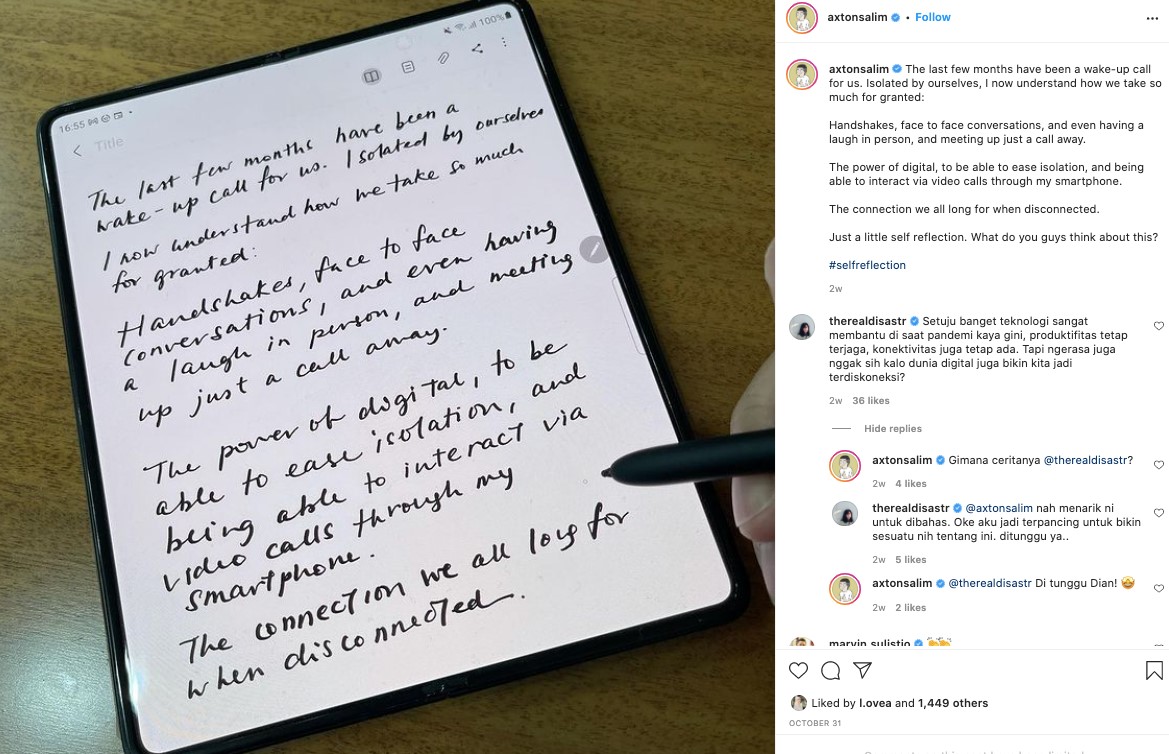 16:55
100%
Title
The last few months have been a
wake-up call for us. Isolated by ourselves
I now understand how we take so much
for granted:
Handshakes, face to face
conversations, and even having
a laugh in person, and meeting
up just a call away.
The power of digital, to be
able to ease isolation, and
being able to interact via
video calls through my
smartphone.
The connection we all long for
when disconnected.
axtonsalim • Follow
axtonsalim The last few months have been a wake-up call
for us. Isolated by ourselves, I now understand how we take so
much for granted:
Handshakes, face to face conversations, and even having a
laugh in person, and meeting up just a call away.
The power of digital, to be able to ease isolation, and being
able to interact via video calls through my smartphone.
The connection we all long for when disconnected.
Just a little self reflection. What do you guys think about this?
#selfreflection
2w
therealdisastr Setuju banget teknologi sangat
membantu di saat pandemi kaya gini, produktifitas tetap
terjaga, konektivitas juga tetap ada. Tapi ngerasa juga
nggak sih kalo dunia digital juga bikin kita jadi
terdiskoneksi?
2w 36 likes
Hide replies
axtonsalim Gimana ceritanya @therealdisastr?
2w 4 likes
therealdisastr @axtonsalim nah menarik ni
untuk dibahas. Oke aku jadi terpancing untuk bikin
sesuatu nih tentang ini. ditunggu ya..
2w 5 likes
axtonsalim @therealdisastr Di tunggu Dian! 🤩
2w 2 likes
marvin_sulistio 👏👏
Liked by l.ovea and 1,449 others
OCTOBER 31